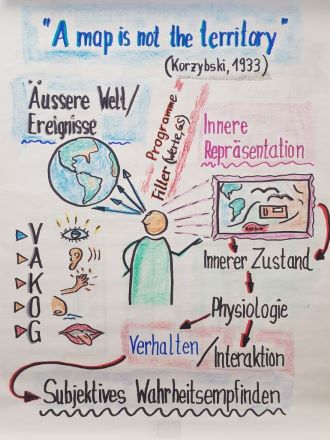 "A map is not the territory"
(Korzybski, 1933)
Äussere Welt/
Ereignisse
Programme
Filter (Werte, GS)
Innere
Repräsentation
V
A
K
O
G
Innerer Zustand
Physiologie
Verhalten / Interaktion
Subjektives Wahrheitsempfinden